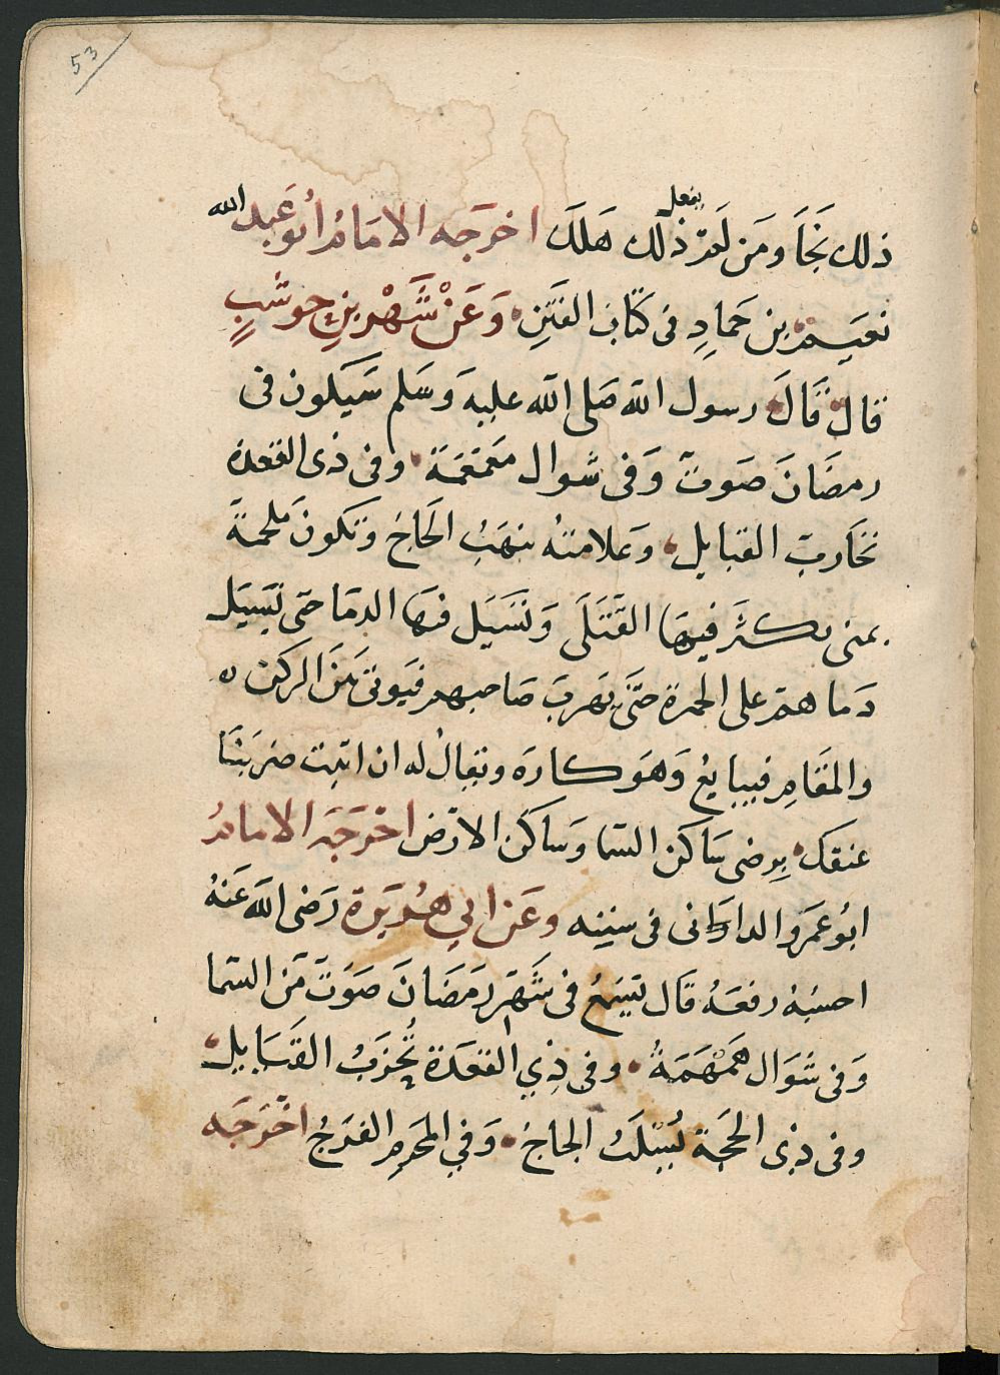 53
ذلك نَجَا ومَن لَم يفعل ذلك هَلَكَ اخرَجَه الامَام أبو عَبد الله
نعَيم بن حَمادٍ فى كتَاب الفتَنِ وَعَنْ شَهْرِ بنِ حوشَبٍ
قالَ قَالَ رسول الله صَلى الله عليه وَسَلم سَيَكون فى
رمضَانَ صَوتٌ وَفى شوال مَعْمَعَة وفى ذى القعدة
تحَاربُ القبايل وَعلامتهُ ينهَبُ الحَاج وتكونَ ملحمَة
بمنى يكثرُ فيهَا القَتلَى وَتسَيل فيهَا الدمَا حتى تسَيل
دَماهم على الجمرة حتَّى يَهربَ صَاحبهم فيوتى بَينَ الركن
والمقَامِ فيبايعُ وَهوَ كاره ويقالُ له ان ابَيت ضرَبنَا
عنقك يرضى سَاكن السمَا وَسَاكن الارض اخرَجَه الامامُ
ابُو عَمرو الدانى فى سننه وعَن ابي هُرَيرَة رَضى الله عَنهُ
احسبُهُ رفعَهُ قَال تسمَع فى شَهر رَمَضَانَ صَوت مَن السمَا
وَفى شوَال هَمْهَمَةُ وفى ذِي القعَدة تُحزبُ القَبَايل
وفى ذى الحجَة يُسلَبُ الحاج وَفي المحَرمِ الفرَجُ اخرَجَه